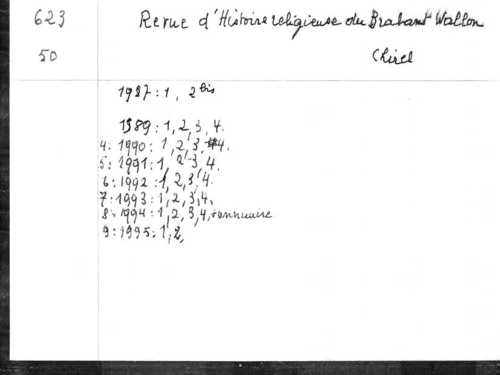 623 Revue d'Histoire religieuse du Brabant Wallon
50 Chirel
1987 : 1, 2 bis
1989 : 1, 2, 3, 4.
4 : 1990 : 1, 2, 3, 4.
5 : 1991 : 1, 2, 3, 4.
6 : 1992 : 1, 2, 3, 4.
7 : 1993 : 1, 2, 3, 4.
8 : 1994 : 1, 2, 3, 4, + annuaire
9 : 1995 : 1, 2,